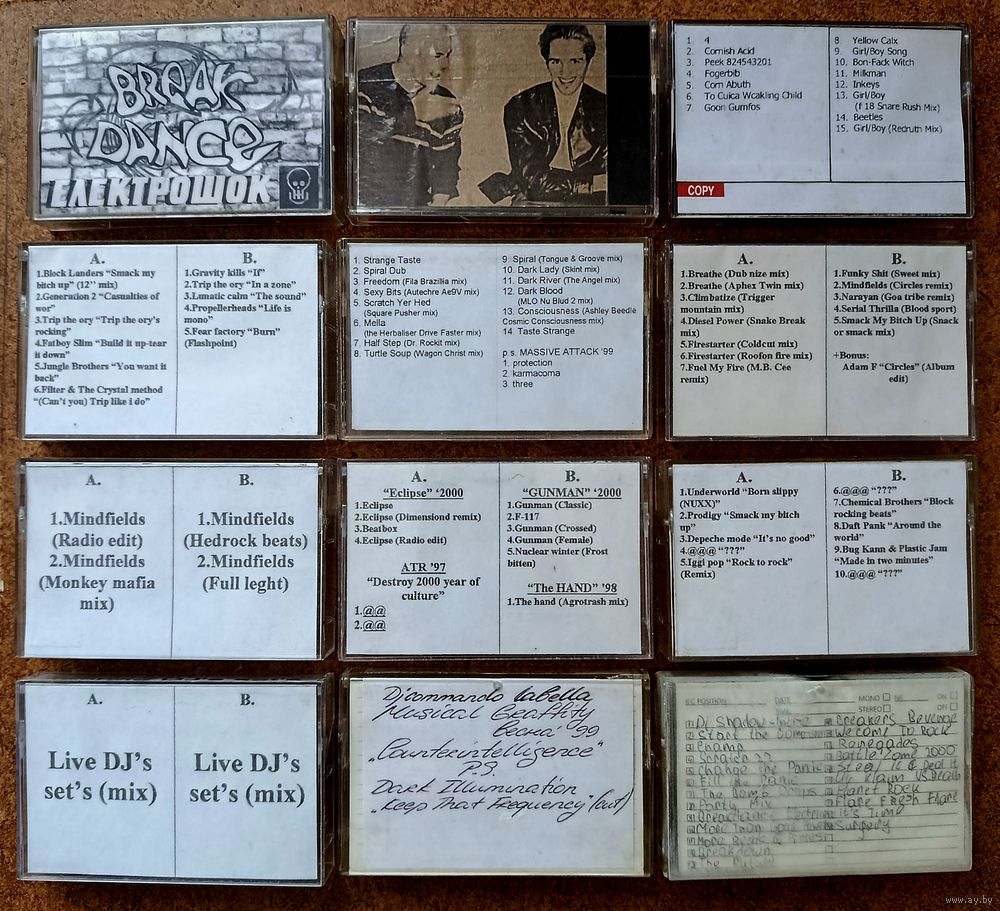 BREAK
DANCE
ЕЛЕКТРОШОК
1. 4
2. Cornish Acid
3. Peek 824543201
4. Fogerbib
5. Corn Abuth
6. To Cuica Wcakling Child
7. Goon Gumfos
8. Yellow Calx
9. Girl/Boy Song
10. Bon-Fack Witch
11. Milkman
12. Inkeys
13. Girl/Boy
(f 18 Snare Rush Mix)
14. Beetles
15. Girl/Boy (Redruth Mix)
COPY
A.
1.Block Landers “Smack my
bitch up” (12’’ mix)
2.Generation 2 “Casualties of
wor”
3.Trip the ory “Trip the ory’s
rocking”
4.Fatboy Slim “Build it up-tear
it down”
5.Jungle Brothers “You want it
back”
6.Filter & The Crystal method
“(Can’t you) Trip like i do”
B.
1.Gravity kills “If”
2.Trip the ory “In a zone”
3.Lunatic calm “The sound”
4.Propellerheads “Life is
mono”
5.Fear factory “Burn”
(Flashpoint)
1. Strange Taste
2. Spiral Dub
3. Freedom (Fila Brazillia mix)
4. Sexy Bits (Autechre Ae9V mix)
5. Scratch Yer Hed
(Square Pusher mix)
6. Mella
(the Herbaliser Drive Faster mix)
7. Half Step (Dr. Rockit mix)
8. Turtle Soup (Wagon Christ mix)
9. Spiral (Tongue & Groove mix)
10. Dark Lady (Skint mix)
11. Dark River (The Angel mix)
12. Dark Blood
(MLO Nu Blud 2 mix)
13. Consciousness (Ashley Beedle
Cosmic Consciousness mix)
14. Taste Strange
p.s. MASSIVE ATTACK '99
1. protection
2. karmacoma
3. three
A.
1.Breathe (Dub nize mix)
2.Breathe (Aphex Twin mix)
3.Climbatize (Trigger
mountain mix)
4.Diesel Power (Snake Break
mix)
5.Firestarter (Coldcut mix)
6.Firestarter (Roofon fire mix)
7.Fuel My Fire (M.B. Cee
remix)
B.
1.Funky Shit (Sweet mix)
2.Mindfields (Circles remix)
3.Narayan (Goa tribe remix)
4.Serial Thrilla (Blood sport)
5.Smack My Bitch Up (Snack
or smack mix)
+Bonus:
Adam F “Circles” (Album
edit)
A.
1.Mindfields
(Radio edit)
2.Mindfields
(Monkey mafia
mix)
B.
1.Mindfields
(Hedrock beats)
2.Mindfields
(Full leght)
A.
“Eclipse” ‘2000
1.Eclipse
2.Eclipse (Dimensiond remix)
3.Beatbox
4.Eclipse (Radio edit)
ATR ’97
“Destroy 2000 year of
culture”
1.@@
2.@@
B.
“GUNMAN” ‘2000
1.Gunman (Classic)
2.F-117
3.Gunman (Crossed)
4.Gunman (Female)
5.Nuclear winter (Frost
bitten)
“The HAND” ’98
1.The hand (Agrotrash mix)
A.
1.Underworld “Born slippy
(NUXX)”
2.Prodigy “Smack my bitch
up”
3.Depeche mode “It’s no good”
4.@@@ “???”
5.Iggi pop “Rock to rock”
(Remix)
B.
6.@@@ “???”
7.Chemical Brothers “Block
rocking beats”
8.Daft Pank “Around the
world”
9.Bug Kann & Plastic Jam
“Made in two minutes”
10.@@@ “???”
A.
Live DJ’s
set’s (mix)
B.
Live DJ’s
set’s (mix)
Dj commando labella
Musical Graffity
весна '99
„Counterintelligence"
P.S.
Dark Illumination
„Keep That Frequency" (cut)
DATE
MONO
STEREO
NR
ON
OFF
Dj Shadow
Champ
Scratch 22
Change the
Party Mix
Breakdown
Breakers Revenge
Welcome To Rock
Renegades
Battle Zone 2000
Planet Rock
Flare Fresh Flare
It's Time
Surgery
www.ay.by